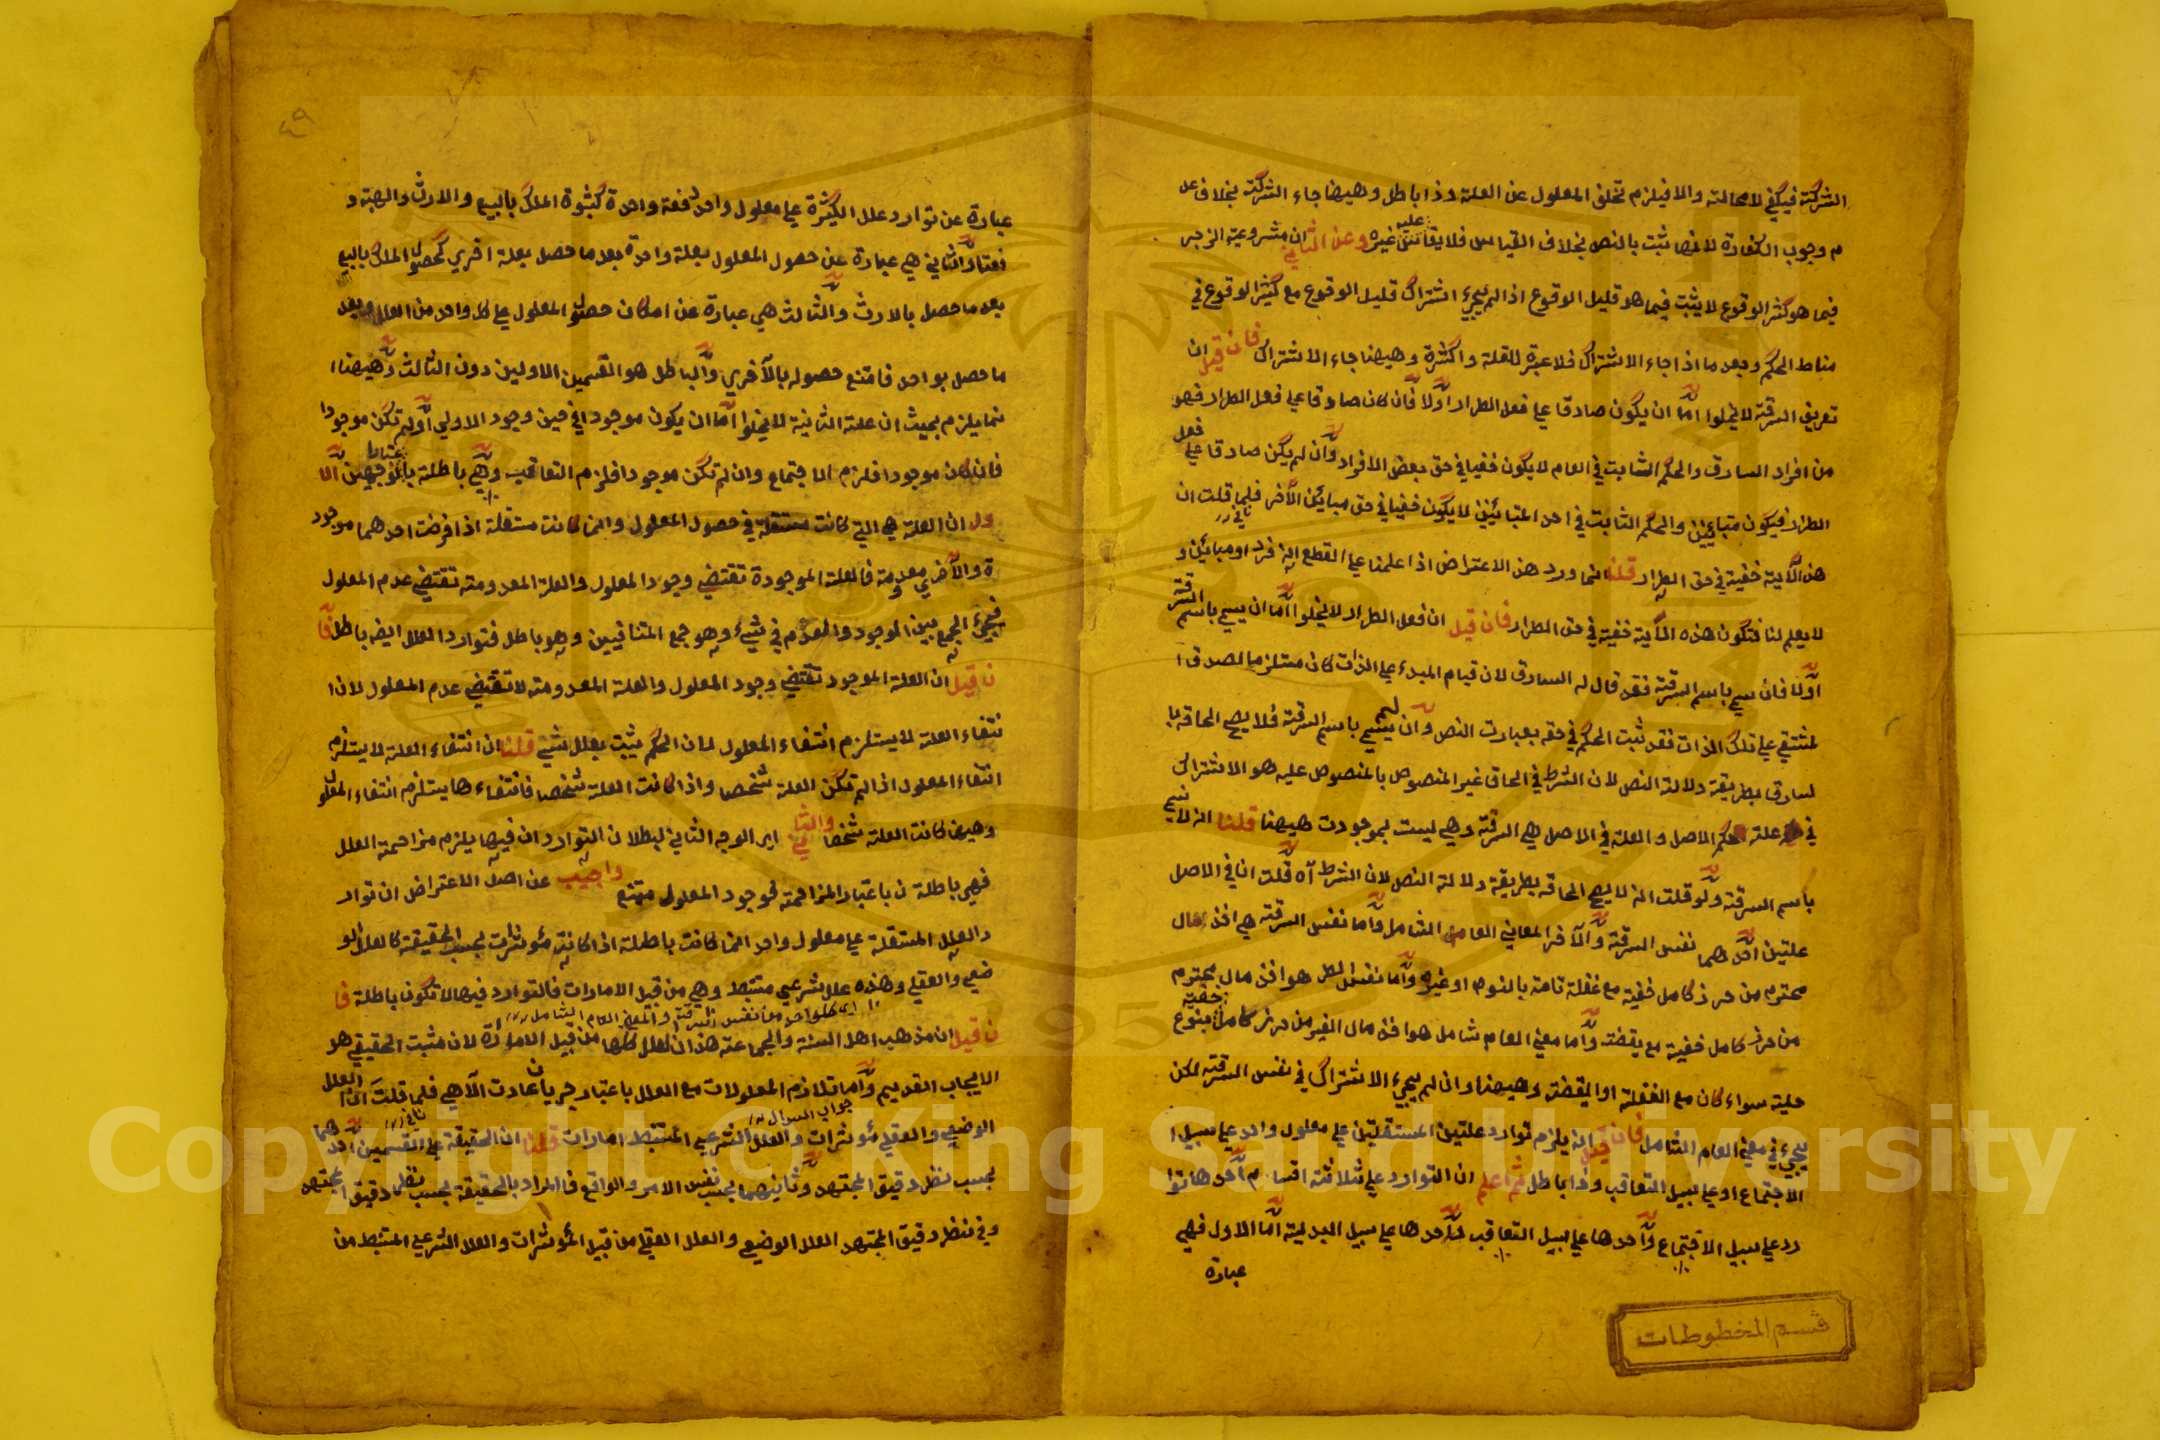 الشركة فيكفي لا محالة والا فيلزم تخلف المعلول عن العلة وذا باطل وههنا جاء الشركة بخلاف عد
م وجوب الكفارة لانها ثبت بالنص بخلاف القياس فلا يقاس عليه غيره وعن الثاني ان مشروعية الزجر
فيما هو كثير الوقوع لا يثبت فيما هو قليل الوقوع اذا لم يجيء اشتراك قليل الوقوع مع كثير الوقوع في
مناط الحكم وبعد ما اذا جاء الاشتراك فلا عبرة للقلة والكثرة وههنا جاء الاشتراك فان قيل ان
تعريف السرقة لا يخلوا اما ان يكون صادقا على فعل الطرار او لا فان كان صادقا على فعل الطرار فهو
من افراد السارق والحكم الثابت في العام لا يكون خفيا في حق بعض الافراد وان لم يكن صادقا على فعل
الطرار فيكون متبايئين والحكم الثابت في احد المتبائنين لا يكون خفيا في حق مبائن الآخر فلما قلت ان
هذا الآية خفية في حق الطرار قلنا انما ورد هذ الاعتراض اذا علمنا على القطع انه فرد او مبائن و
لا يعلم لنا فتكون هذه الآية خفية في حق الطرار فان قيل ان فعل الطرار لا يخلوا اما ان يسمي باسم السرقة
او لا فان سمي باسم السرقة فقد قال له السارق لان قيام المبدء على الذات كان مستلزما لصدق ا
لمشتق على تلك الذات فقد ثبت الحكم في حقه بعبارت النص وان لم يسمي باسم السرقة فلا يصح الحاقه با
لسارق بطريقة دلالة النص لان الشرط في الحاق غير المنصوص بالمنصوص عليه هو الاشتراك
في علة حكم الاصل والعلة في الاصل هي السرقة وهي ليست بموجودت ههنا قلنا انه لا يسمي
باسم السرقة ولو قلت انه لا يصح الحاقه بطريقة دلالة النص لان الشرط آه قلت ان في الاصل
علتين احدهما نفس السرقة والآخر المعاني العام الشامل واما نفس السرقة هي اخذ مال
محترم من حرز كامل خفية مع غفلة تامة بالنوم او غيره واما نفس الطر هو اخذ مال محترم
من حرز كامل خفية مع يقضة واما معني العام شامل هو اخذ مال الغير من حرز كامل خفية بنوع
حلية سواء كان مع الغفلة او اليقضة وههنا وان لم يجيء الاشتراك في نفس السرقة لكن
يجيء في معني العام الشامل فان قيل انه يلزم توارد علتين المستقلتين على معلول واحد على سبيل ا
لاجتماع او على سبيل التعاقب وذا باطل ثم اعلم ان التوارد على ثلاثة اقسام احدها توا
رد على سبيل الاجتماع واحدها على سبيل التعاقب واحدها على سبيل البدلية اما الاول فهي
عبارة
قسم المخطوطات
٤٩
عبارة عن توارد علل الكثيرة على معلول واحد دفعة واحدة كثبوة الملك بالبيع والارث والهبة و
الثاني هي عبارة عن حصول المعلول بعلة واحدة بعد ما حصل بعلة اخري كحصول الملك بالبيع
بعد ما حصل بالارث والثالث هي عبارة عن امكان حصول المعلول على كل واحد من العلل وبعد
ما حصل بواحد فامتنع حصوله بالآخري والباطل هو القسمين الاولين دون الثالث وههنا ا
نما يلزم بحيث ان علة الثانية لا يخلوا اما ان يكون موجودا في حين وجود الاولي او لم تكن موجودا
فان كان موجودا فلزم الاجتماع وان لم تكن موجودا فلزم التعاقب وهي باطلة بالوجهين الا
ول ان العلة هي التي كانت مستقلة في حصول المعلول وانما كانت مستقلة اذا فرضت احدهما موجود
ة والآخري معدومة فالعلة الموجودة تقتضي وجود المعلول والعلة المعدومة تقتضي عدم المعلول
فيجيء الجمع بين الموجود والمعدوم في شيء وهو جمع المتنافيين وهو باطل فتوارد العلل ايضه باطل فا
ن قيل ان العلة الموجود تقتضي وجود المعلول والعلة المعدومة لا تقتضي عدم المعلول لان ا
نتفاء العلة لا يستلزم انتفاء المعلول لان الحكم يثبت بعلل شتي قلنا ان انتفاء العلة لا يستلزم
انتفاء المعلول اذا لم تكن العلة شخصا واذا كانت العلة شخصا فانتفاءها يستلزم انتفاء المعلول
وههنا كانت العلة شخصا والثاني اي الوجه الثاني لبطلان التوارد ان فيها يلزم مزاحمة العلل
فهي باطلة ن باعتبار المزاحمة فوجود المعلول ممتنع واجيب عن اصل الاعتراض ان توار
د العلل المستقلة على معلول واحد انما كانت باطلة اذا كانت مؤثرات بحسب الحقيقة كالعلل الو
ضعي والعقلي وهذه علل شرعي مستنبط وهي من قبيل الامارات فالتوارد فيها لا تكون باطلة فا
ن قيل ان مذهب اهل السنة والجماعة هذ ان العلل كلها من قبيل الامارة لان مثبت الحقيقي هو
الايجاب القديم واما تلازم المعلولات مع العلل باعتبار جريان عادت الآلهي فلما قلت ان العلل
الوضعي والعقلي مؤثرات والعلل الشرعي المستنبط امارات قلنا ان الحقيقة على القسمين احدهما
بحسب نظر دقيق المجتهد وثانيهما بحسب نفس الامر والواقع فالمراد بالحقيقة بحسب نظر دقيق المجتهد
وفي نظر دقيق المجتهد العلل الوضعي والعلل العقلي من قبيل المؤثرات والعلل الشرعي المستنبط من
Copyright © King Saud University
1957